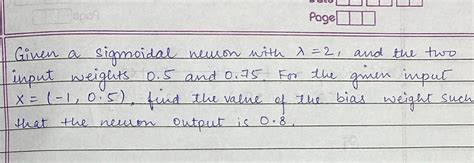 Page
Given a sigmoidal neuron with λ = 2, and the two
input weights 0.5 and 0.75. For the given input
X = (-1, 0.5), find the value of the bias weight such
that the neuron output is 0.8.